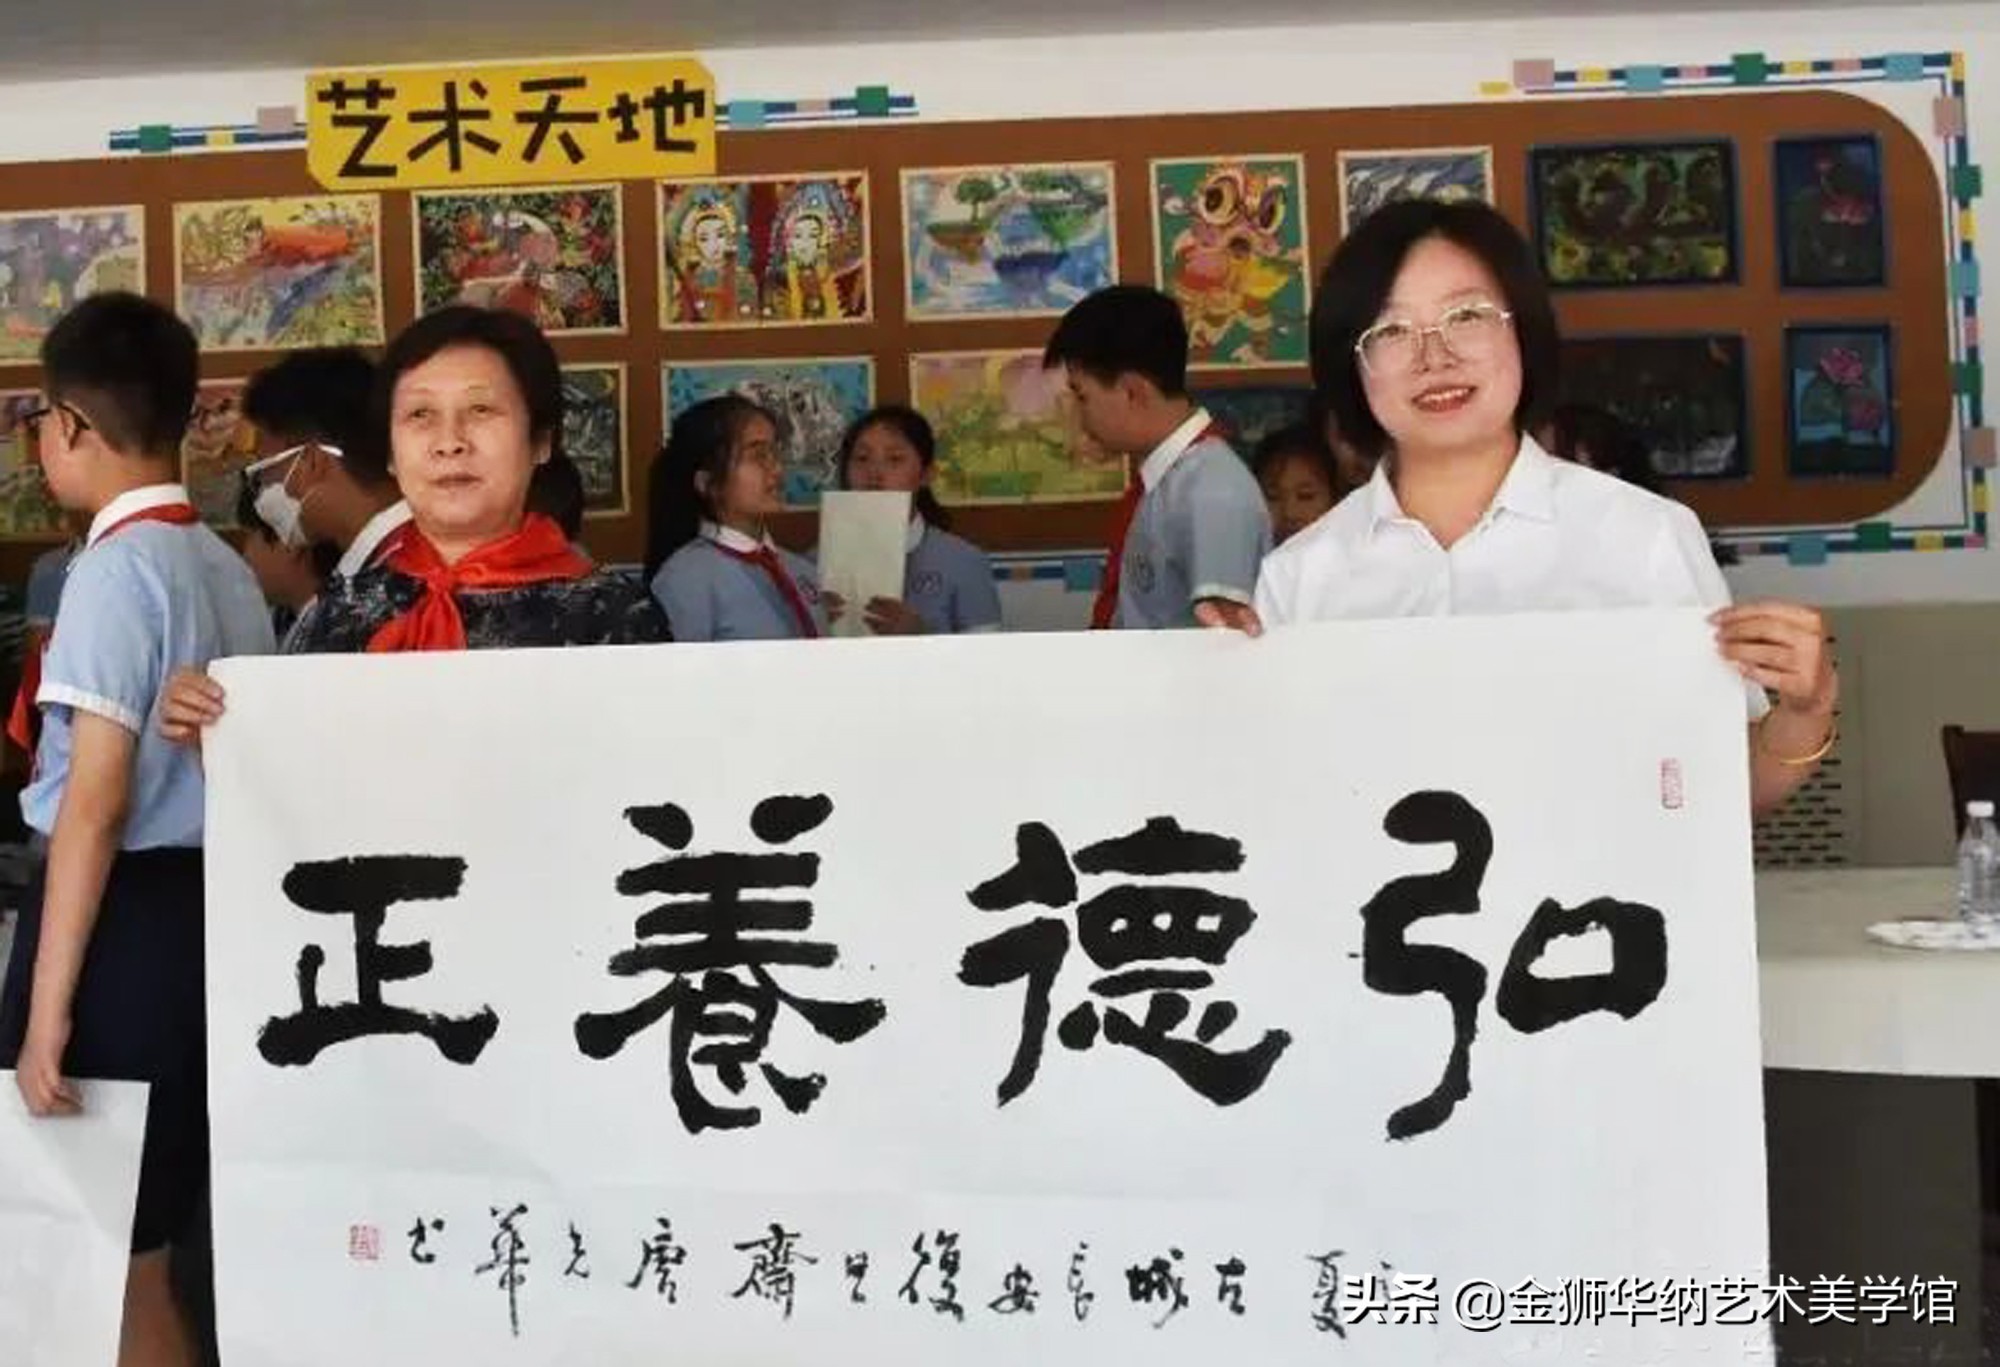 艺术天地
弘德養正
夏古城長安復旦齋唐光華书
头条 @金狮华纳艺术美学馆